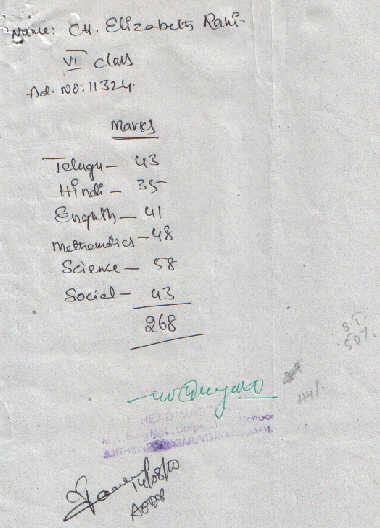 Name: CH. Elizabeth Rani
VI class
Ad. No: 11324
Marks
Telugu - 43
Hindi - 35
English - 41
Mathematics - 48
Science - 58
Social - 43
268
S.T.
50%